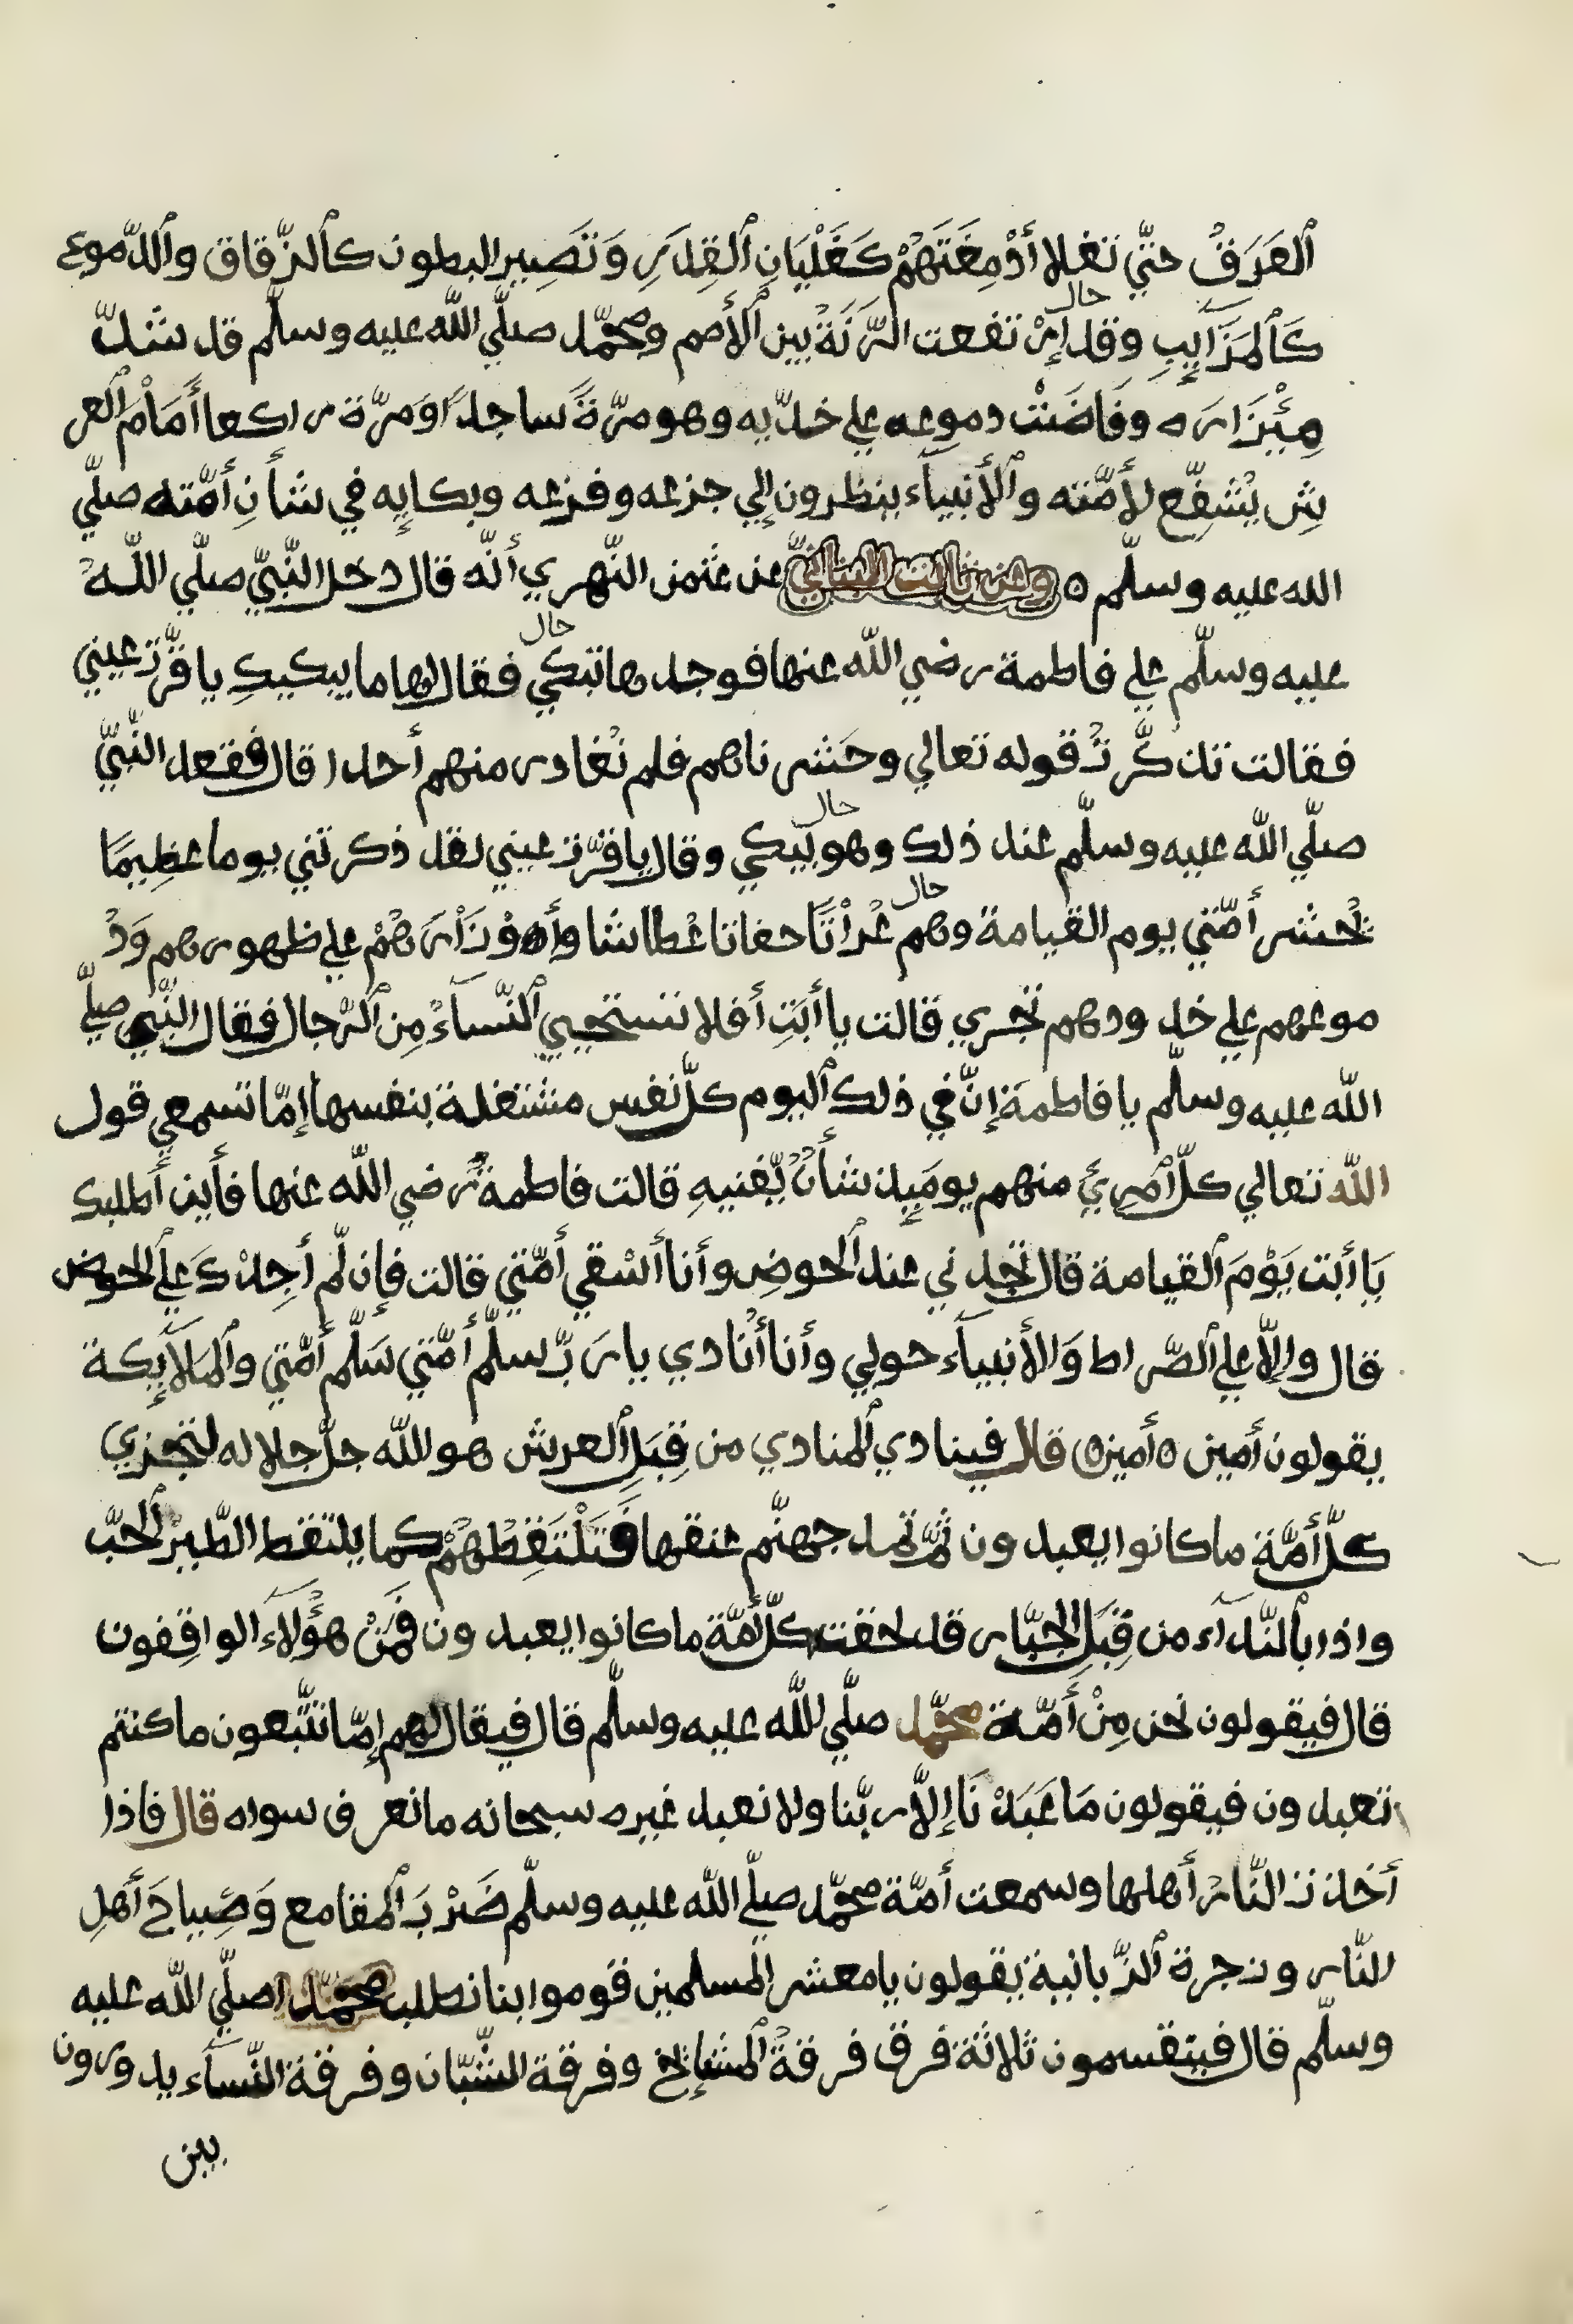 ٱلعَرَقُ حتّي تغلا أَدْمِغَتَهُمْ كَغَلْيَانِ ٱلقِدَرِ وَتَصِير البطون كٱلزّقاق وٱلدّموع
كَٱلمَزَآيِبِ وقد إرتفعت الرَّنَةُ بين ٱلأمم ومحمّد صلّي اللّه عليه وسلّم قد شدّ
حال
مِئْزَارَه وفَاضَتْ دموعه علي خدّيه وهو مرّةً ساجدًا وَمرّة راكعا أَمَامْ ٱلعر
شِ يُشفِّع لأمّته وٱلأنبيآء ينظرون إلي جزعه وفزعه وبكايِه في شأنِ أمّته صلّي
الله عليه وسلّم ه وعن ثابت البنانيّ عن عثمن النّهري أنّه قال دخل النّبيّ صلّي اللّهُ
عليه وسلّم علي فاطمة رضي اللّه عنها فوجدها تبكي فقال لها ما يبكيكِ يا قرّتَ عيني
حال
فقالت تذكّرتُ قوله تعالي وحَشرناهم فلم نُغادر منهم أحدا قال ففعد النّبيّ
صلّي اللّه عليه وسلّم عند ذلك وهو يبكي وقال يا قرّت عيني لقد ذكرتني يوما عظِيمَا
حال
تُحشر أمّتي يوم القيامة وهم عُرْاتًا حفاتا عُطاشا وأَوْزَارَهُمْ علي ظهورهم وَدُ
حال
موعهم علي خدودهم تجري قالت يا أبَتِ أفلا تستحيي ٱلنّسآءُ مِن ٱلرّجال فقال النّبي صلّي
اللّه عليه وسلّم يا فاطمة إنّ في ذلك ٱليوم كلّ نفس مشتغلة بنفسها إمّا تسمعي قول
اللّه تعالي كلّ أمرئٍ منهم يوميِذ شأنٌ يّغنيهِ قالت فاطمةُ رضي اللّه عنها فأين أطلبك
يَا أبت يَوْمَ ٱلقيامة قال تجدني عند ٱلحوضِ وأنا أسْقي أمّتي قالت فإن لّم أجِدْكَ علي ٱلحوض
قال وإلاّ علي ٱلصّراط وَالأنبيآء حولي وأنا أُنادي يا ربّ سلّم أمّتي سَلّم أمّتي وٱلملآيكة
يقولون أمين ه أمين ه قال فينادي ٱلمنادي من قِبَلِ ٱلعرش هو اللّه جلّ جلاله لتجزي
كلّ أمّة ما كانوا يعبدون ثمّ تمد جهنّم عنقها فَتَلْتَقِطُهُمْ كما يلتقط الطّيرُ ٱلحَبّ
واذا بٱلنّدآء من قِبَلِ الجبّار قد لحقت كلّ أمّة ما كانوا يعبدون فَمَنْ هؤُلآء الواقِفون
قال فيقولون نحن مِنْ أمّة محمّد صلّي اللّه عليه وسلّم قال فيقال لهم إمّا تتّبعون ما كنتم
تعبدون فيقولون مَا عَبَدْنَا إلاّ ربّنا ولا نعبد غيره سبحانه ما نعرف سواه قال فاذا
أخذت النّارُ أهلها وسمعت أمّة محمّد صلّي اللّه عليه وسلّم ضَرْبَ ٱلمقامع وَصِياحَ أهلِ
النّار وزجرة ٱلزّبانية يقولون يا معشر المسلمين قوموا بنا نطلب محمّدا صلّي اللّه عليه
وسلّم قال فيتقسمون ثلاثة فرق فرقةُ ٱلمشايخ وفرقة الشّبّان وفرقة النّسآء يدورون
بين